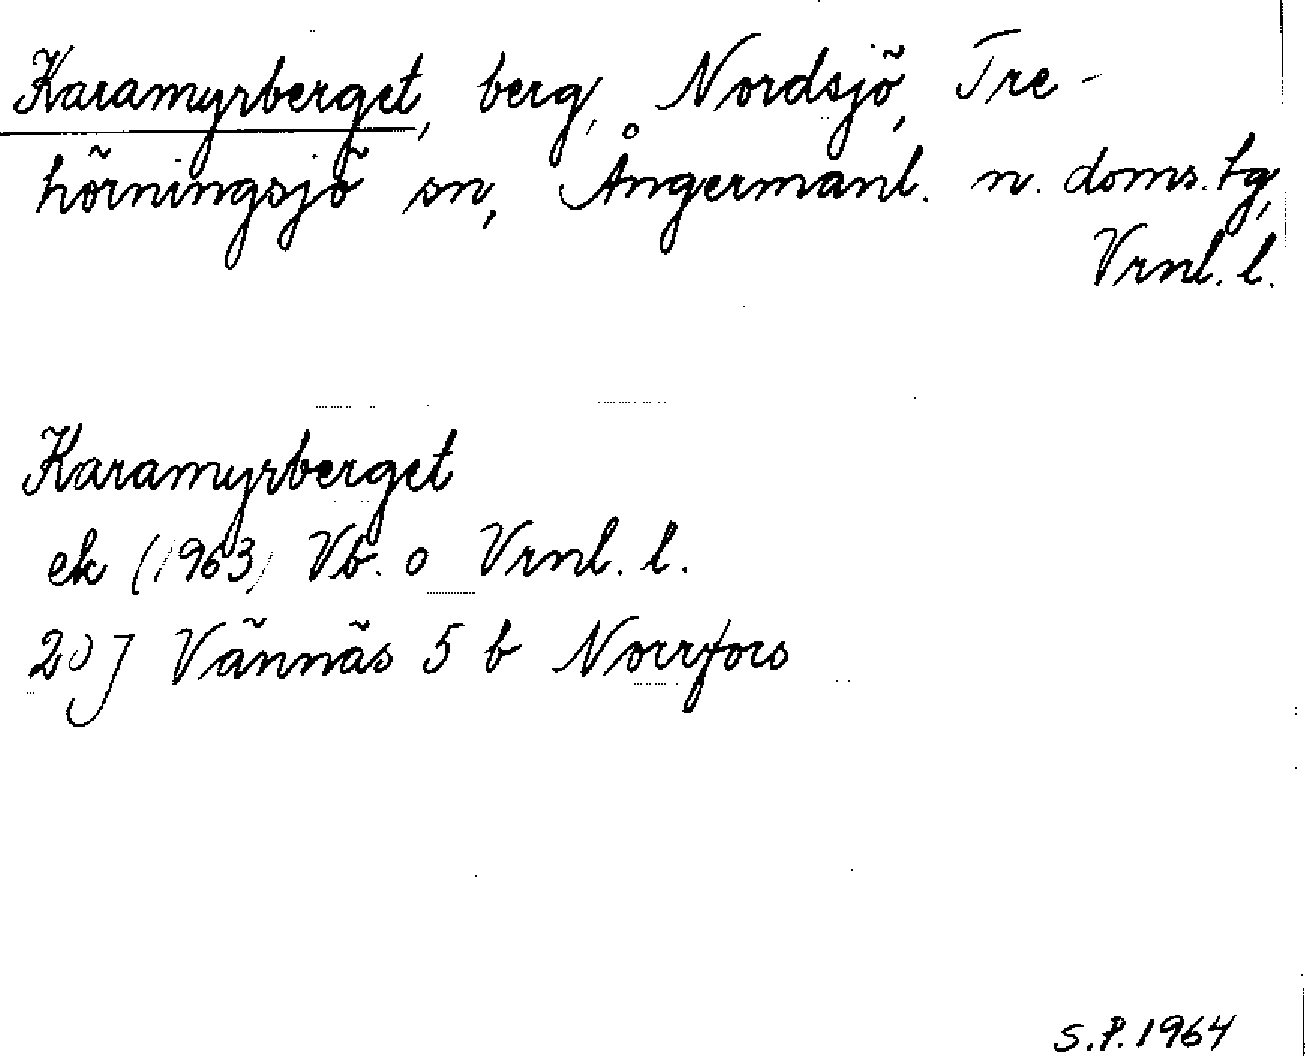 Karamyrberget, berg, Nordsjö, Tre-
hörningsjö sn, Ångermanl. n. doms.tg,
Vrnl. l.
Karamyrberget
ek (1963) Vb. o Vrnl. l.
20 J Vännäs 5 b Norrfors
S.P. 1964